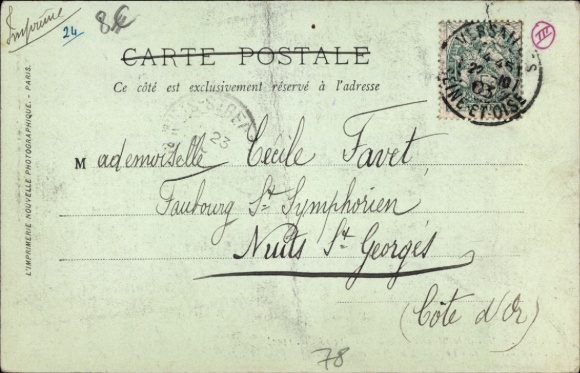 Imprimé
24
8€
III
CARTE POSTALE
Ce côté est exclusivement réservé à l'adresse
VERSAILLES
SEINE-ET-OISE
23
Mademoiselle Cecile Favet
Faubourg St Symphorien
Nuits St Georges
(Côte d'Or)
78
L'IMPRIMERIE NOUVELLE PHOTOGRAPHIQUE. - PARIS.